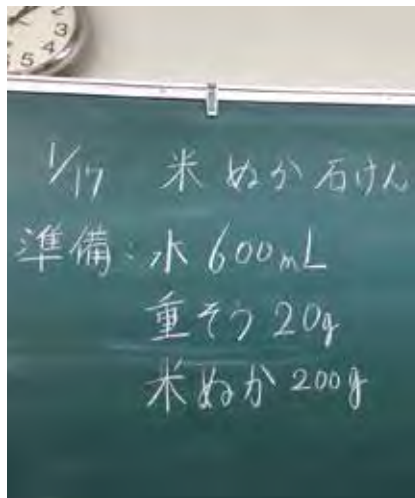 2
3
4
5
1/17 米ぬか石けん
準備:水 600mL
重そう 20g
米ぬか 200g